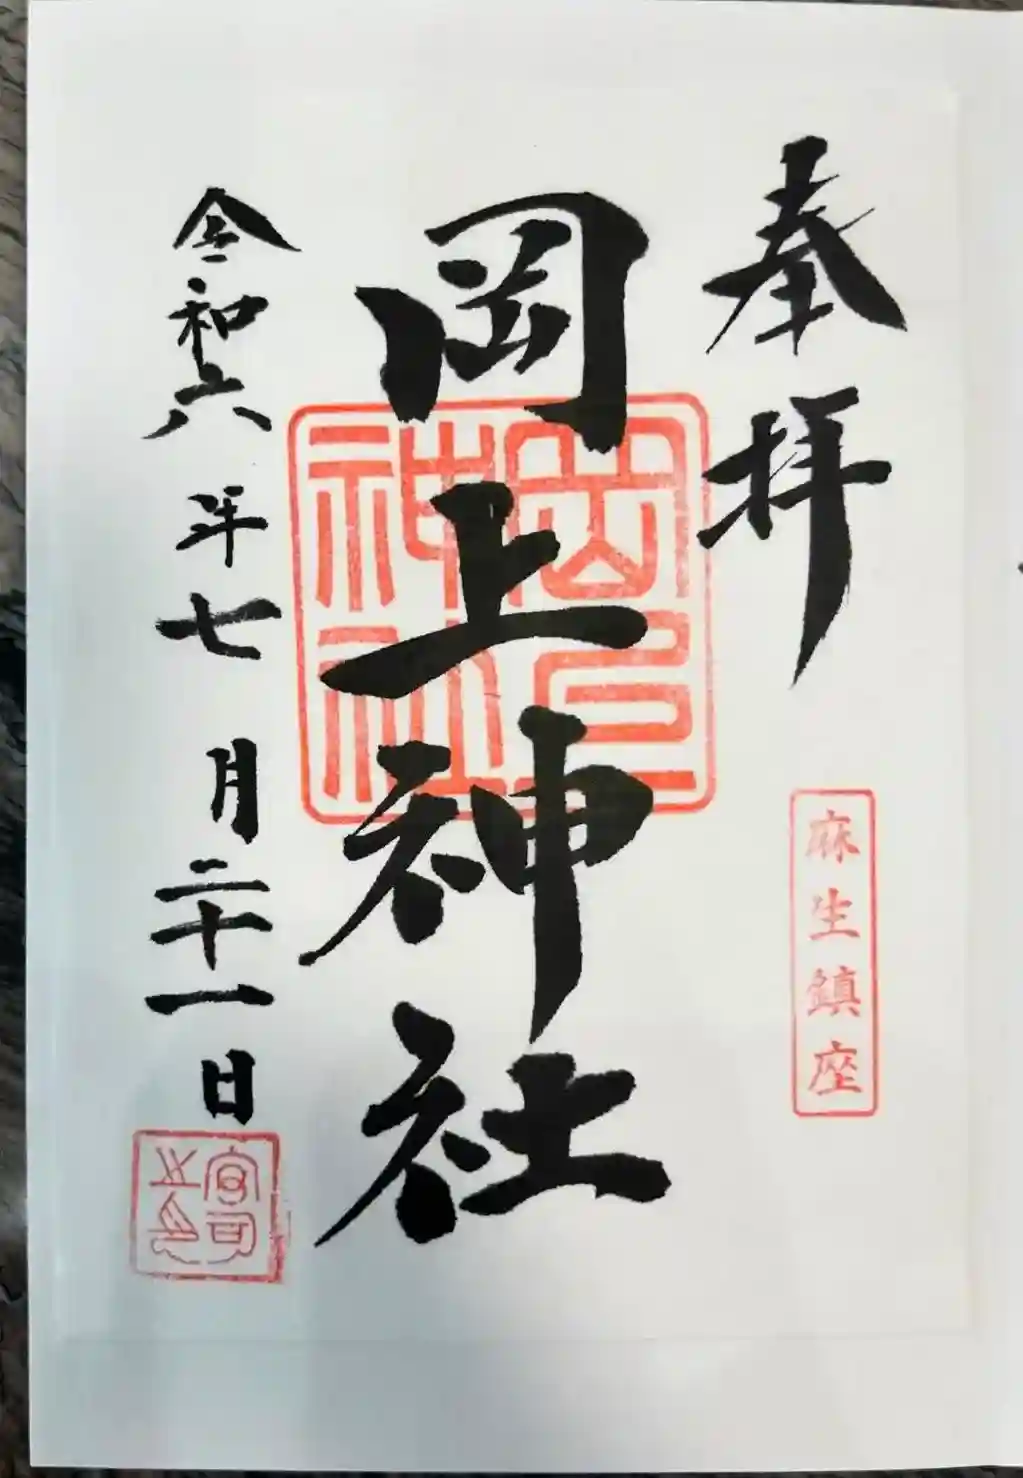 奉拝
麻生鎮座
岡上神社
岡上
神社
令和六年七月二十一日